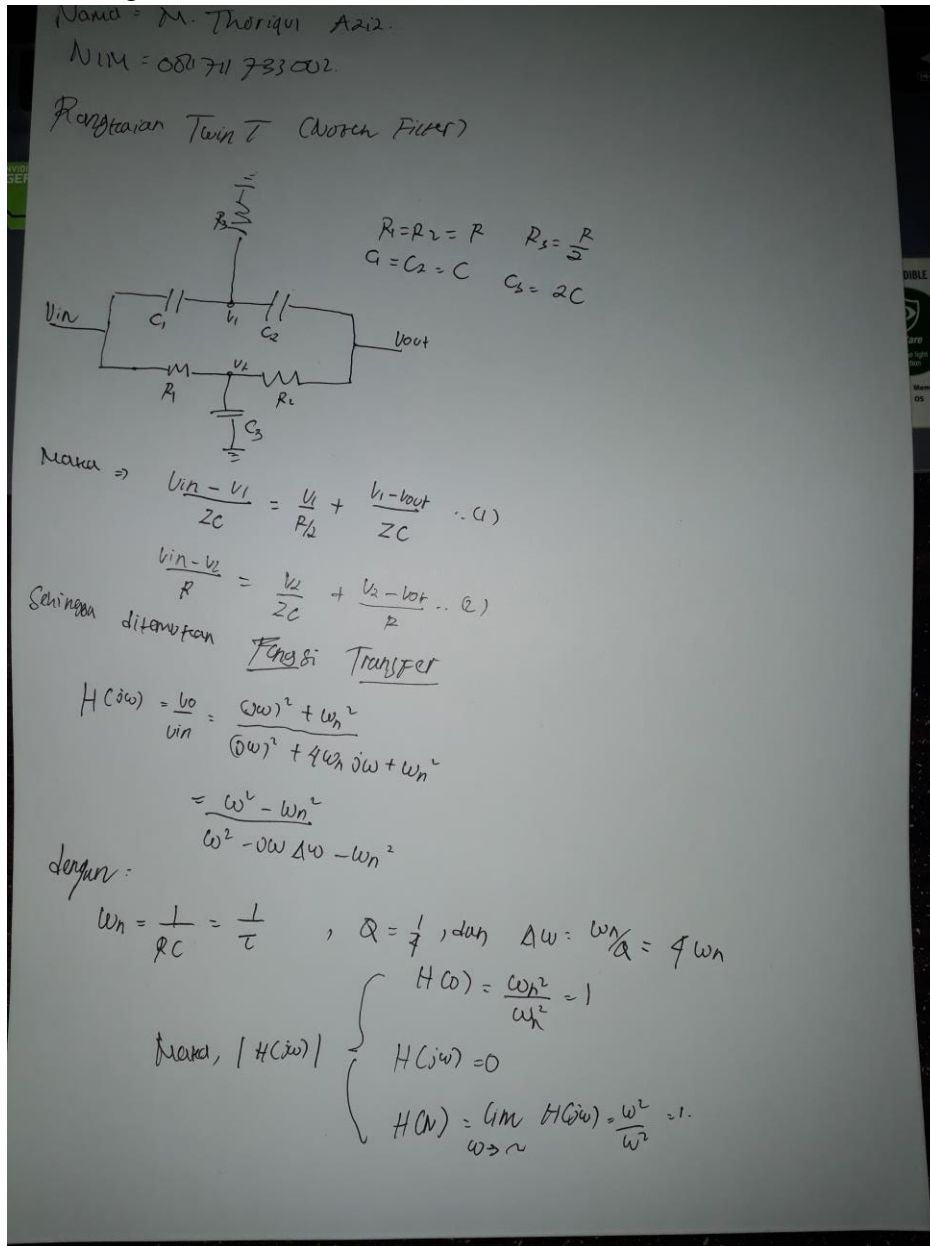 Nama = M. Thoriqul Aziz.
NIM = 081711733002.
Rangkaian Twin T (Notch Filter)
R3
R1 = R2 = R R3 = R/2
C1 = C2 = C C3 = 2C
Vin C1 V1 C2 Vout
R1 V2 R2
C3
Maka ⇒ (Vin - V1)/ZC = V1/(R/2) + (V1 - Vout)/ZC .. (1)
(Vin - V2)/R = V2/ZC + (V2 - Vot)/R .. (2)
Sehingga ditemukan Fungsi Transfer
H(jω) = Vo/Vin = ((jω)² + ωn²)/((jω)² + 4ωn jω + ωn²)
= (ω² - ωn²)/(ω² - jω Δω - ωn²)
dengan :
ωn = 1/RC = 1/τ , Q = 1/4 , dan Δω = ωn/Q = 4ωn
H(0) = ωn²/ωn² = 1
Maka, |H(jω)| { H(jω) = 0
H(~) = lim ω→~ H(jω) = ω²/ω² = 1.
NVIDI
GEF
DIBLE
are
OS